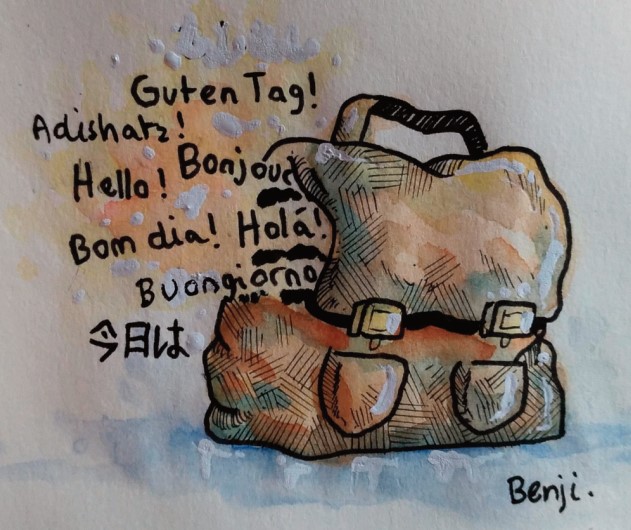 Guten Tag!
Adishatz!
Bonjour
Hello!
Bom dia! Holá!
Buongiorno
今日は
Benji.